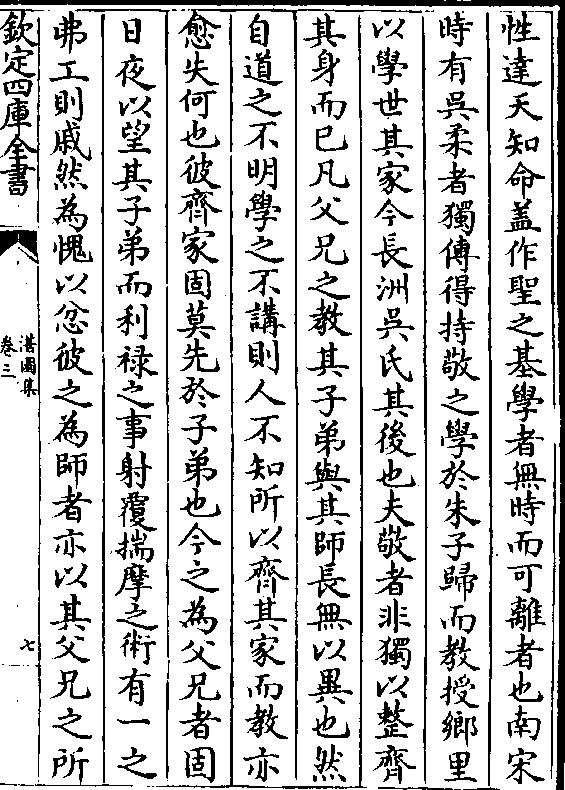 性達天知命盖作聖之基學者無時而可離者也南宋
時有吳柔者獨傳得持敬之學於朱子歸而教授鄉里
以學世其家今長洲吳氏其後也夫敬者非獨以整齊
其身而已凡父兄之教其子弟與其師長無以異也然
自道之不明學之不講則人不知所以齊其家而教亦
愈失何也彼齊家固莫先於子弟也今之為父兄者固
日夜以望其子弟而利祿之事射覆揣摩之術有一之
弗工則戚然為愧以忿彼之為師者亦以其父兄之所
欽定四庫全書
湛園集
卷三
七